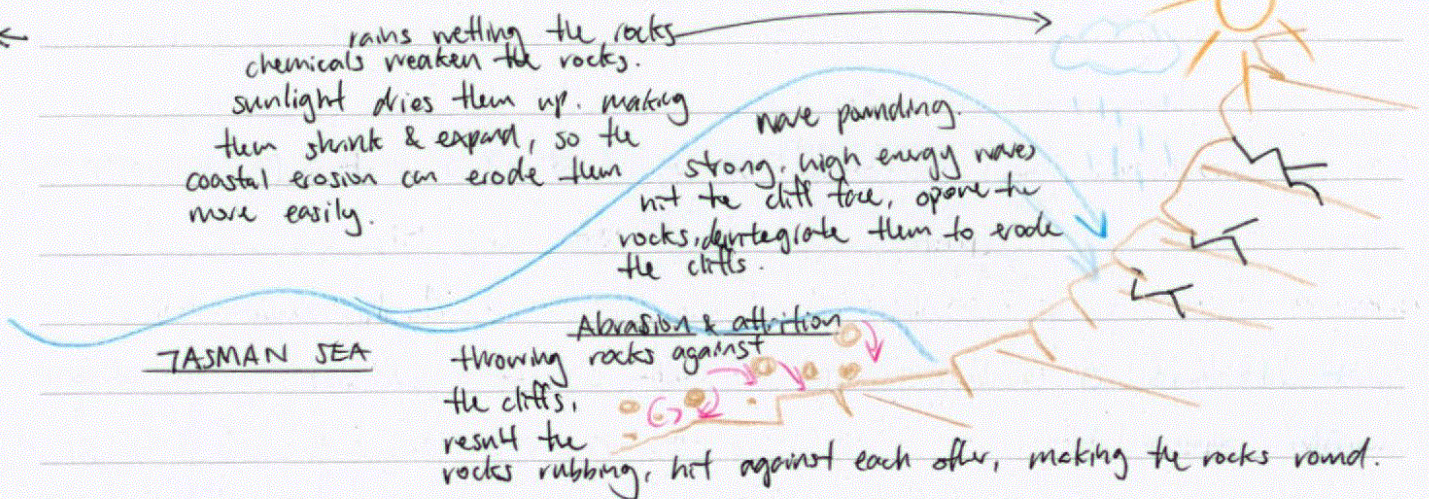 rains wetting the rocks
chemicals weaken the rocks.
sunlight dries them up. making
them shrink & expand, so the
coastal erosion can erode them
more easily.
wave pounding.
strong, high energy waves
hit the cliff face, opone the
rocks, deintegrate them to erode
the cliffs.
TASMAN SEA
Abrasion & attrition
throwing rocks against
the cliffs,
result the
rocks rubbing, hit against each other, making the rocks round.